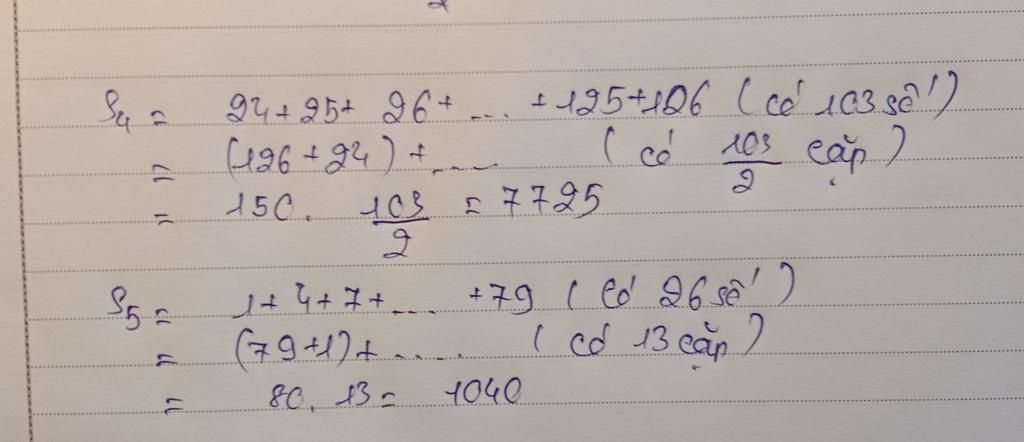 S₄ = 24+25+ 26+ ... +125+126 (có 103 số)
= (126+24) + .... (có 103/2 cặp)
= 150. 103/2 = 7725
S₅ = 1+4+7+ ... +79 (có 26 số)
= (79+1)+ ..... (có 13 cặp)
= 80. 13 = 1040